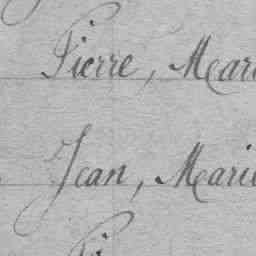 Pierre, Mar
Jean, Marie